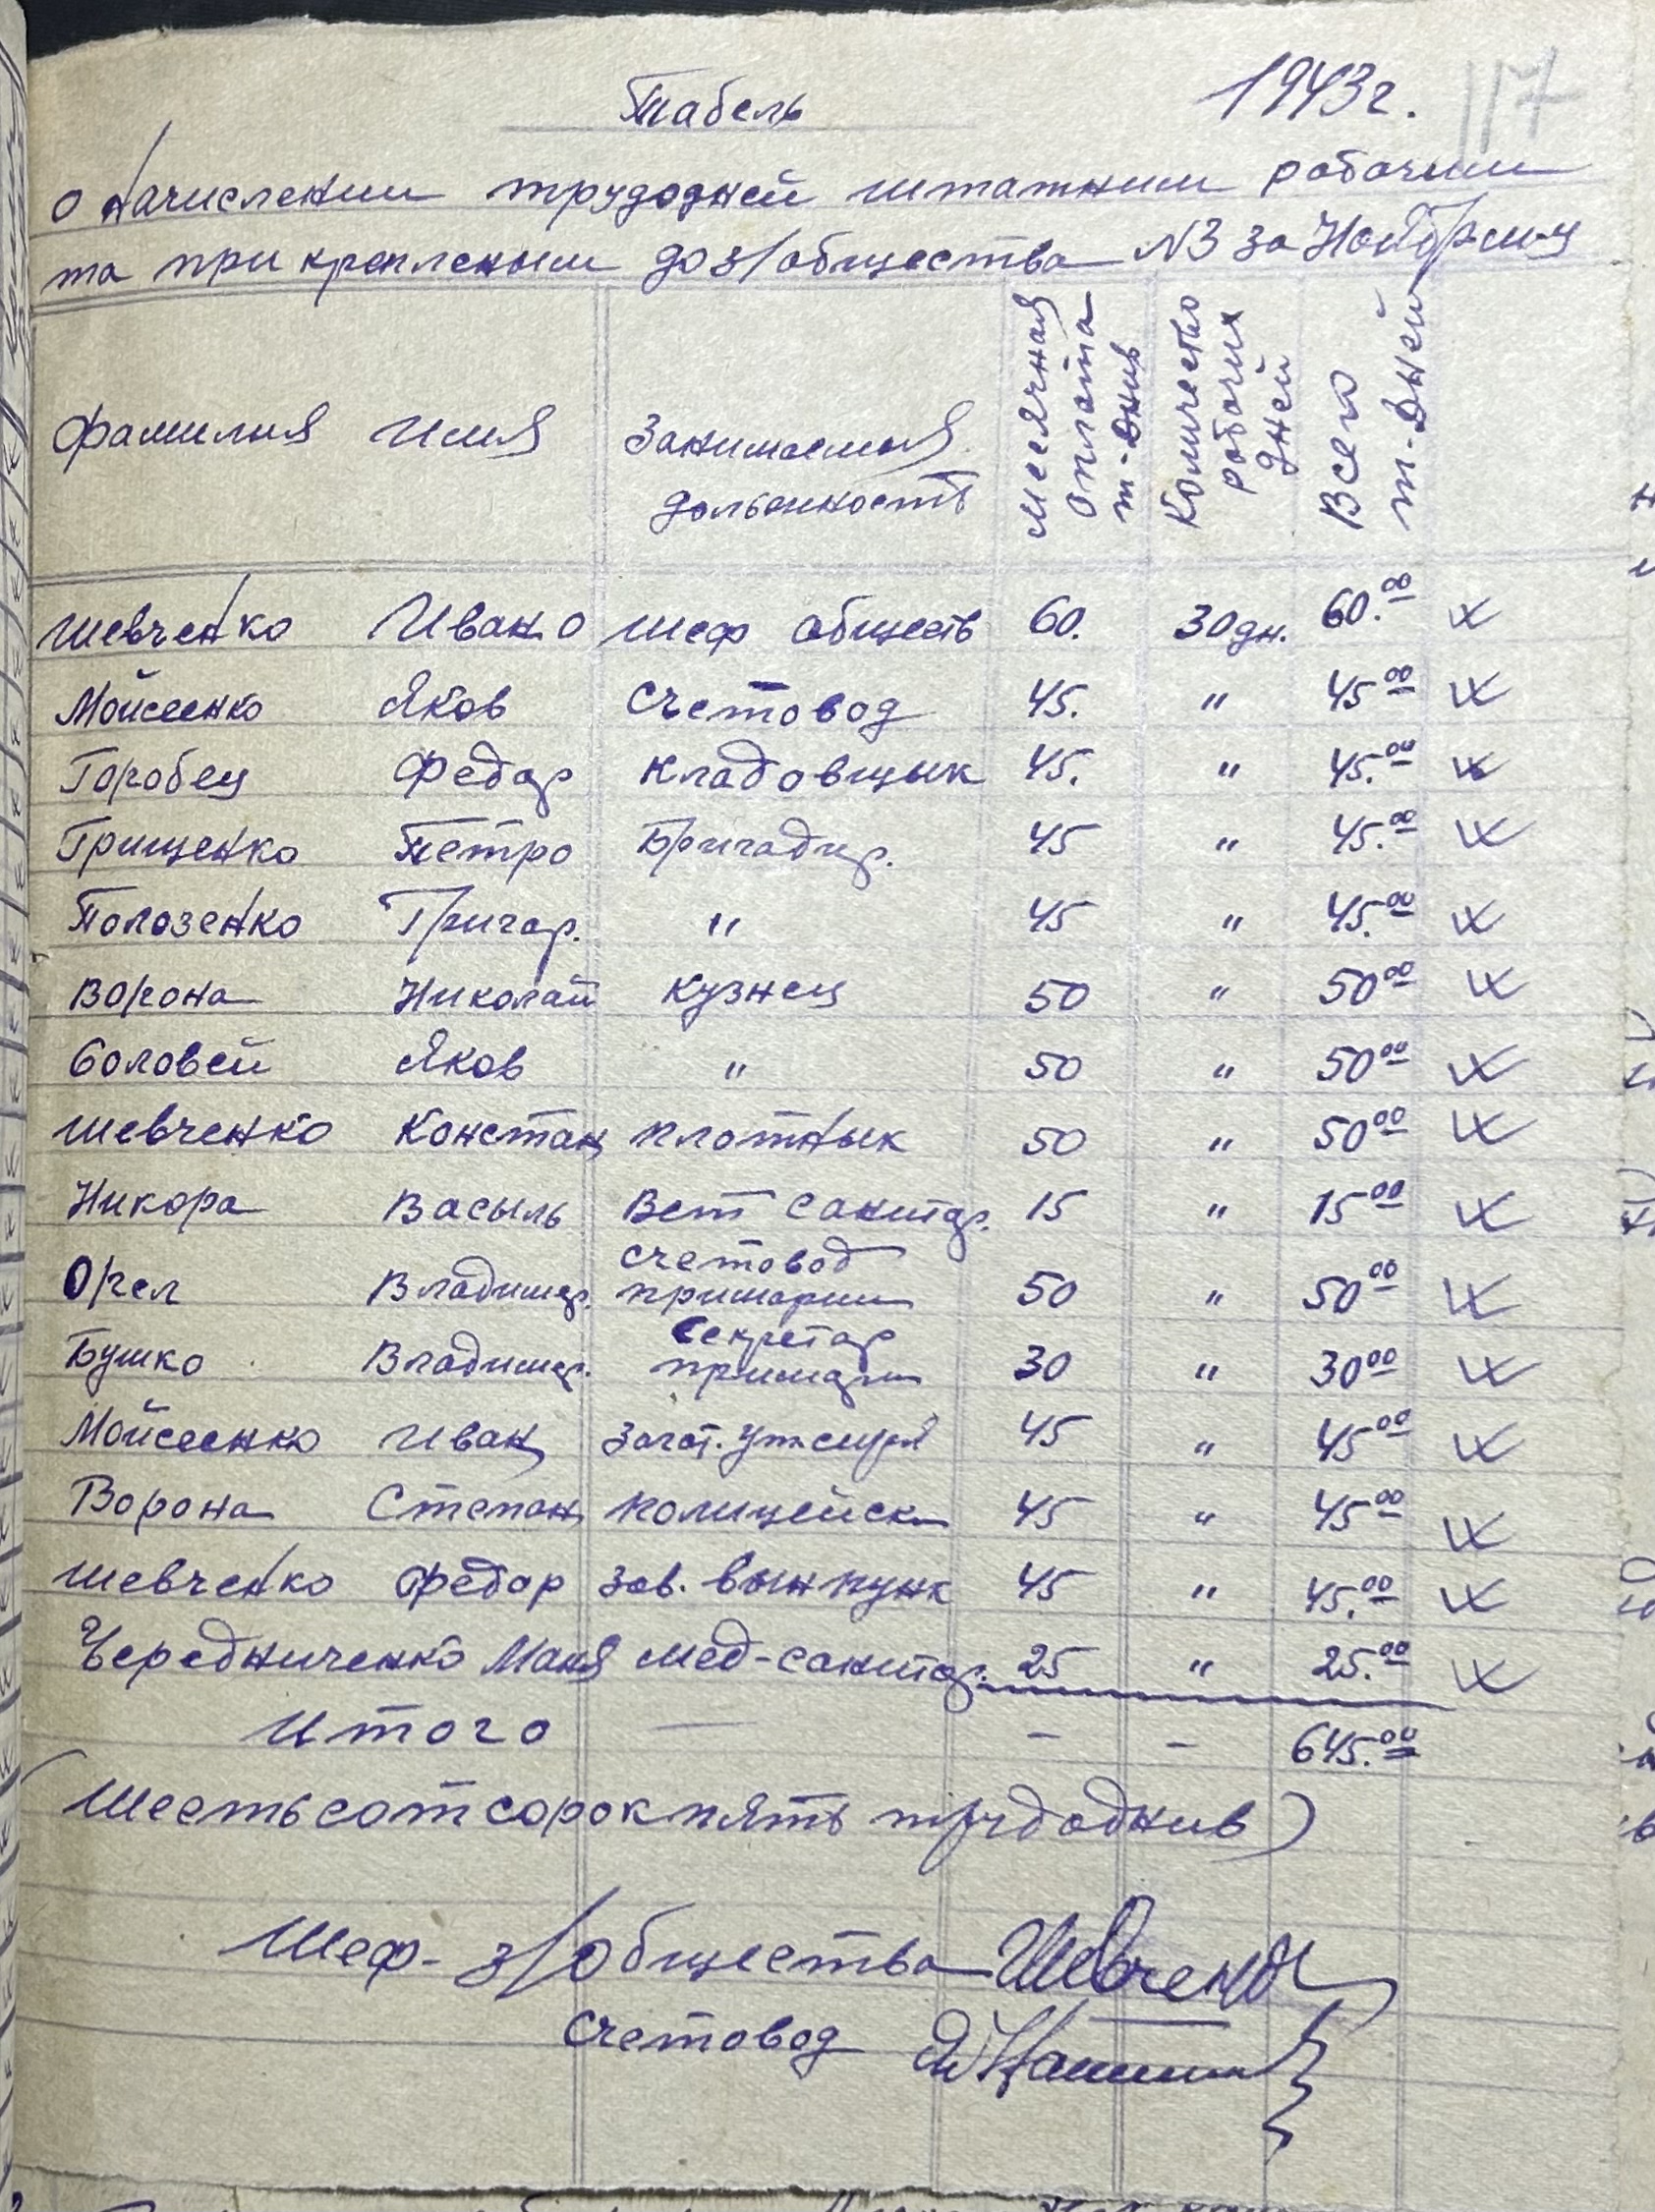 Табель 1943 г. 117
о начислении трудодней штатним рабочим
та прикрепленым до з/общества N3 за Ноябрь м-ц
Фамилия Имя Занимаемыя дольжность Месячная оплата т-днив Количество рабочих дней Всего т-дней
Шевченко Иван О шеф обществ 60. 30 дн. 60.00
Мойсеенко Яков Счетовод 45. " 45 00
Горобец Федор кладовщык 45. " 45.00
Грищенко Петро Бригадир. 45 " 45.00
Полозенко Григор. " 45 " 45.00
Ворона Николай кузнец 50 " 50 00
Соловей Яков " 50 " 50 00
Шевченко Констан плотнык 50 " 50 00
Никора Васыль Вет санитар. 15 " 15 00
Орел Владимер. счетовод примарии 50 " 50 00
Бушко Владимер. Секретар примари 30 " 30 00
Мойсеенко Иван Загот. 45 " 45 00
Ворона Степан полицейск 45 " 45 00
Шевченко Федор зав. вын пунк 45 " 45.00
Чередниченко Маня мед-санитар. 25 " 25.00
Итого — - - 645.00
(Шестьсот сорок пять трудоднив)
Шеф- з/общества Шевченк
Счетовод